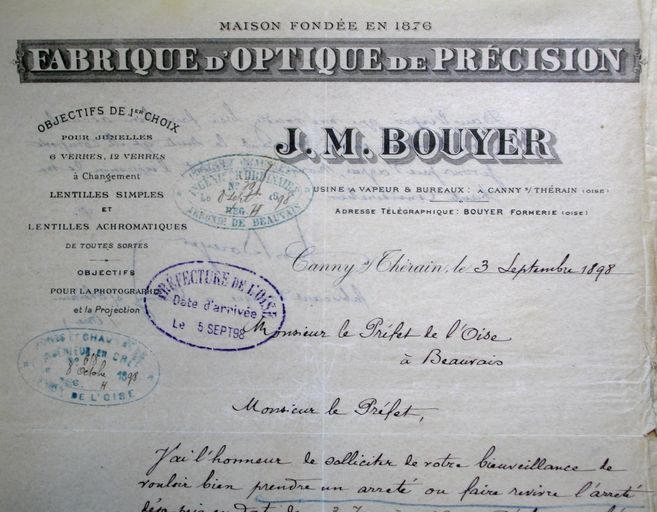 MAISON FONDÉE EN 1876
FABRIQUE D'OPTIQUE DE PRÉCISION
OBJECTIFS DE 1ER CHOIX
POUR JUMELLES
6 VERRES, 12 VERRES
à Changement
LENTILLES SIMPLES
ET
LENTILLES ACHROMATIQUES
DE TOUTES SORTES
OBJECTIFS
POUR LA PHOTOGRAPHIE
et la Projection
J. M. BOUYER
USINE A VAPEUR & BUREAUX : A CANNY S/ THÉRAIN (OISE)
ADRESSE TÉLÉGRAPHIQUE : BOUYER FORMERIE (OISE)
INGÉNIEUR ORDINAIRE
Le 8 Sept 1898
REG. H
DE BEAUVAIS
Canny s/ Thérain, le 3 Septembre 1898
PRÉFECTURE DE L'OISE
Date d'arrivée
Le 5 SEPT 98
INGÉNIEUR EN CHEF
8 Octobre 1898
REG. H
DE L'OISE
Monsieur le Préfet de l'Oise
à Beauvais
Monsieur le Préfet,
J'ai l'honneur de solliciter de votre bienveillance de
vouloir bien prendre un arreté ou faire revivre l'arreté